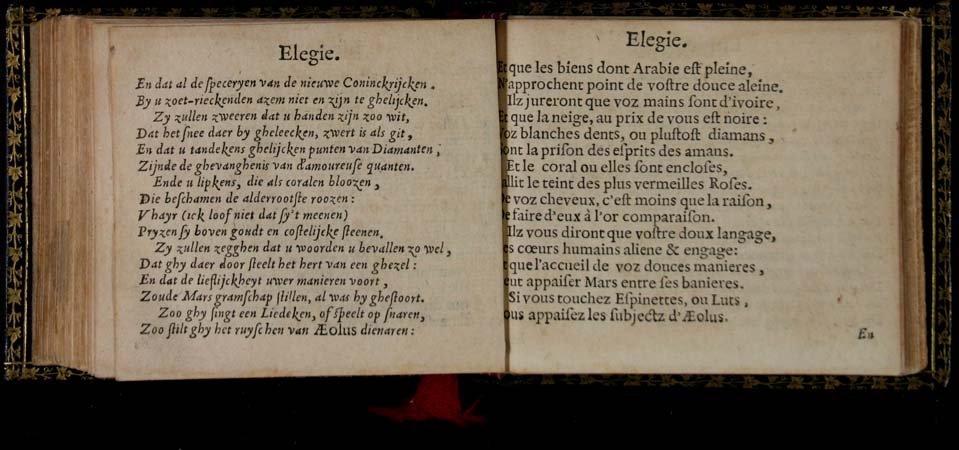 Elegie.
En dat al de ſpeceryen van de nieuwe Coninckrijcken.
By u zoet-rieckenden azem niet en zijn te ghelijcken.
Zy zullen zweeren dat u handen zijn zoo wit,
Dat het ſnee daer by gheleecken, zwert is als git,
En dat u tandekens ghelijcken punten van Diamanten,
Zijnde de ghevanghenis van d'amoureuſe quanten.
Ende u lipkens, die als coralen bloozen,
Die beſchamen de alderrootſte roozen:
V hayr (ick loof niet dat ſy't meenen)
Pryzen ſy boven goudt en coſtelijcke ſteenen.
Zy zullen zegghen dat u woorden u bevallen zo wel,
Dat ghy daer door ſteelt het hert van een ghezel:
En dat de lieflijckheyt uwer manieren voort,
Zoude Mars gramſchap ſtillen, al was hy gheſtoort.
Zoo ghy ſingt een Liedeken, of ſpeelt op ſnaren,
Zoo ſtilt ghy het ruyſchen van Æolus dienaren:
Elegie.
Et que les biens dont Arabie eſt pleine,
N'approchent point de voſtre douce aleine.
Ilz jureront que voz mains ſont d'ivoire,
Et que la neige, au prix de vous eſt noire:
Voz blanches dents, ou pluſtoſt diamans,
ont la priſon des eſprits des amans.
Et le coral ou elles ſont encloſes,
allit le teint des plus vermeilles Roſes.
De voz cheveux, c'eſt moins que la raiſon,
De faire d'eux à l'or comparaiſon.
Ilz vous diront que voſtre doux langage,
es cœurs humains aliene & engage:
t que l'accueil de voz douces manieres,
eut appaiſer Mars entre ſes banieres.
Si vous touchez Eſpinettes, ou Luts,
ous appaiſez les ſubjectz d'Æolus.
En